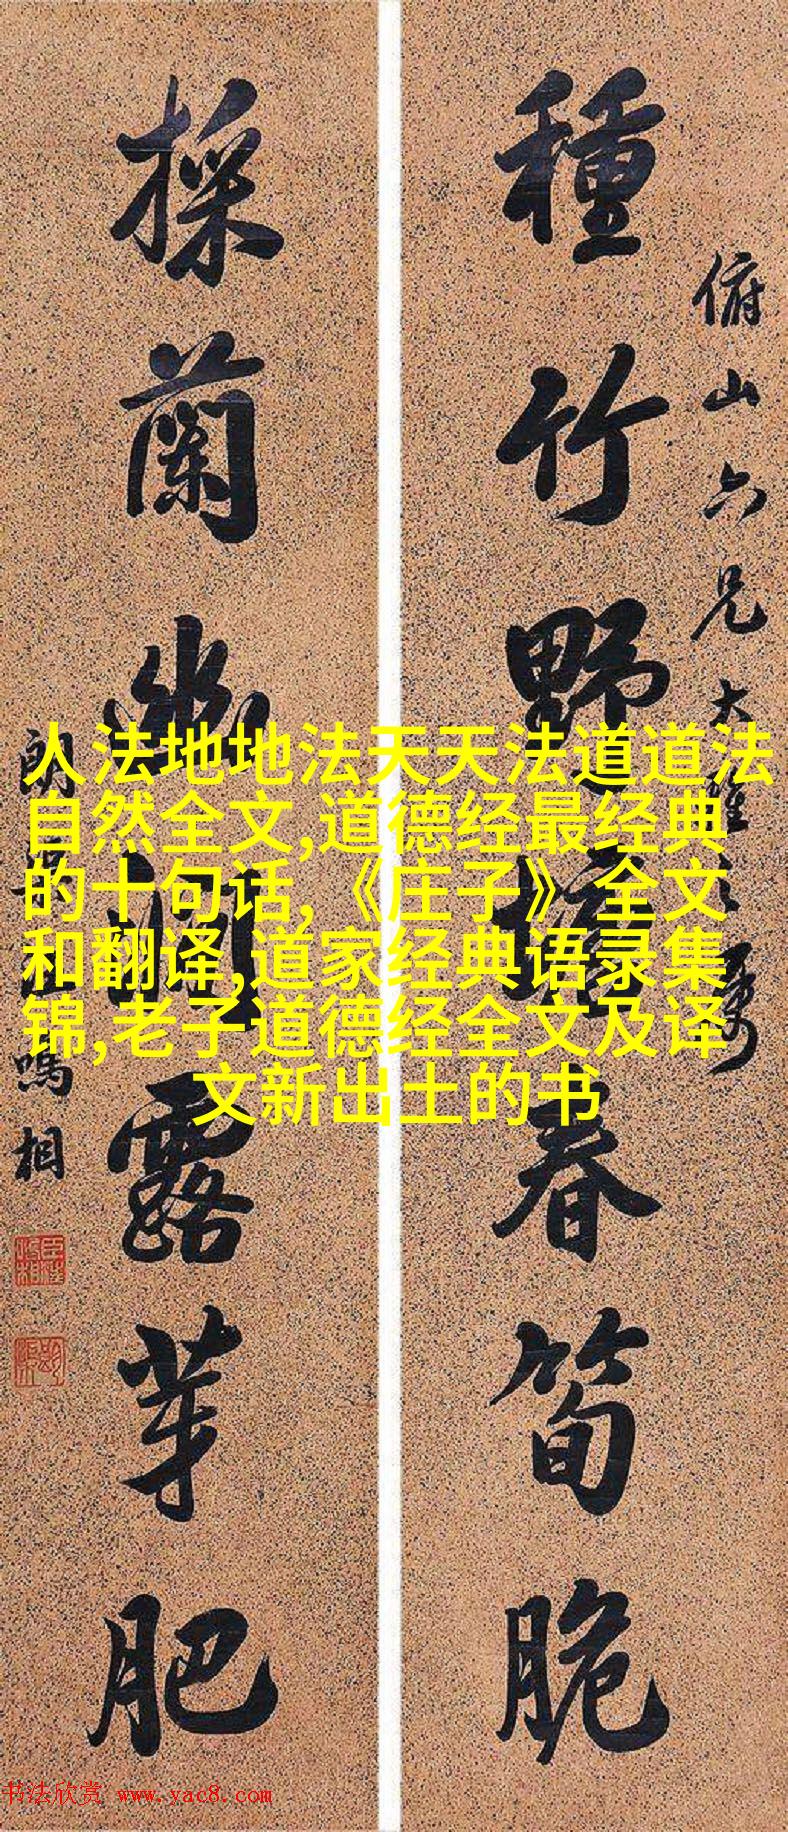 種竹野塘春筍脆
俯山六兄大雅之屬
採蘭幽澗露芽肥
朗渠王鳴相
人法地地法天天法道道法
自然全文,道德经最经典
的十句话,《庄子》全文
和翻译,道家经典语录集
锦,老子道德经全文及译
文新出土的书
书法欣赏 www.yac8.com